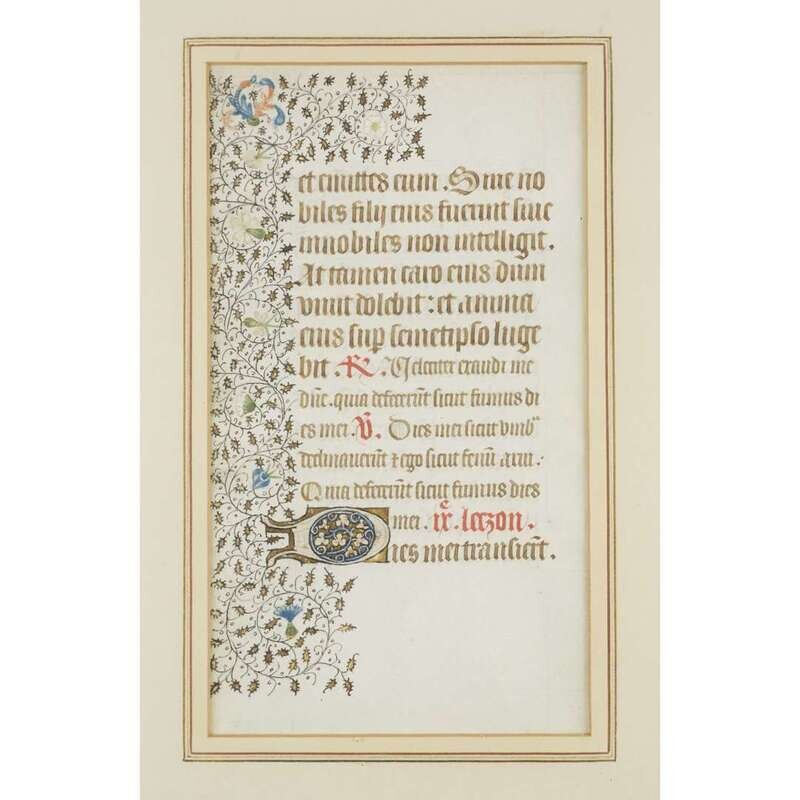 et emittes eum. Siue no
biles filij eius fuerint siue
innobiles non intelligit.
At tamen caro eius dum
viuit dolebit: et anima
eius sup semetipso luge
bit. R. Uelociter exaudi me
dn̄e. quia defecerūt sicut fumus di
es mei. V̄. Dies mei sicut vmb
declinauerūt et ego sicut fenū arui.
Quia defecerūt sicut fumus dies
mei. ix. leczon.
Dies mei transierūt.